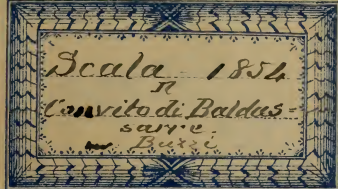 Scala 1854
Il
Convito di Baldas=
sarre.
Buzzi